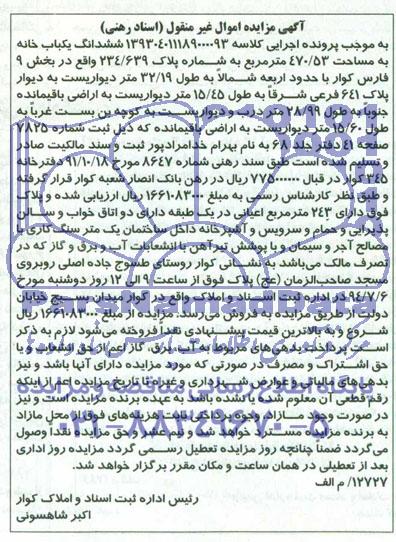 آگهی مزایده اموال غیر منقول (اسناد رهنی)
به موجب پرونده اجرایی کلاسه ۱۳۹۳۰۴۰۱۱۱۸۹۰۰۰۰۹۳ ششدانگ یکباب خانه
به مساحت ۴۷۰/۵۳ متر مربع به شماره پلاک ۲۳۴/۶۳۹ واقع در بخش ۹
فارس کوار با حدود اربعه شمالاً به طول ۳۲/۱۹ متر دیواریست به دیوار
پلاک ۶۴۱ فرعی شرقاً به طول ۱۵/۴۵ متر دیواریست به اراضی باقیمانده
جنوبا به طول ۲۸/۹۹ متر درب و دیواریست به کوچه بن بست غرباً به
طول ۱۵/۶۰ متر دیواریست به اراضی باقیمانده که ذیل ثبت شماره ۷۸۲۵
صفحه ۴۱ دفتر جلد ۶۸ به نام بهرام خدامرادپور ثبت و سند مالکیت صادر
و تسلیم شده است طبق سند رهنی شماره ۸۶۴۷ مورخ ۹۱/۰۱/۱۸ دفترخانه
۳۴۵ کوار در قبال ۷۷۵۰۰۰۰۰۰ ریال در رهن بانک انصار شعبه کوار قرار گرفته
و طبق نظر کارشناس رسمی به مبلغ ۱۶۶۱۰۸۳۰۰۰ ریال ارزیابی شده و پلاک
فوق دارای ۲۴۳ مترمربع اعیانی در یک طبقه دارای دو اتاق خواب و سالن
پذیرایی و حمام و سرویس و آشپزخانه داخل ساختمان یک متر سنگ کاری با
مصالح آجر و سیمان و با پوشش تیرآهن با انشعابات آب و برق و گاز که در
تصرف مالک می‌باشد به نشانی کوار روستای طسوج جاده اصلی روبروی
مسجد صاحب‌الزمان (عج) پلاک فوق از ساعت ۹ الی ۱۲ روز دوشنبه مورخ
۹۴/۷/۶ در اداره ثبت اسناد و املاک واقع در کوار میدان بسیج خیابان
دولت از طریق مزایده به فروش می‌رسد. مزایده از مبلغ ۱۶۶۱۰۸۳۰۰۰ ریال
شروع و به بالاترین قیمت پیشنهادی نقداً فروخته می‌شود لازم به ذکر
است پرداخت بدهی‌های مربوط به آب، برق، گاز اعم از حق انشعاب و یا
حق اشتراک و مصرف در صورتی که مورد مزایده دارای آنها باشد و نیز
بدهی‌های مالیاتی و عوارض شهرداری و غیره تا تاریخ مزایده اعم از اینکه
رقم قطعی آن معلوم شده یا نشده باشد به عهده برنده مزایده است و نیز
در صورت وجود مازاد، وجوه پرداختی بابت هزینه‌های فوق از محل مازاد
به برنده مزایده مسترد خواهد شد و نیم عشر و حق مزایده نقداً وصول
می‌گردد ضمناً چنانچه روز مزایده تعطیل رسمی گردد مزایده روز اداری
بعد از تعطیلی در همان ساعت و مکان مقرر برگزار خواهد شد.
۱۲۷۲۷/ م الف
رئیس اداره ثبت اسناد و املاک کوار
اکبر شاهسونی
۰۲۱-۸۸۳۴۹۶۷۰-۵